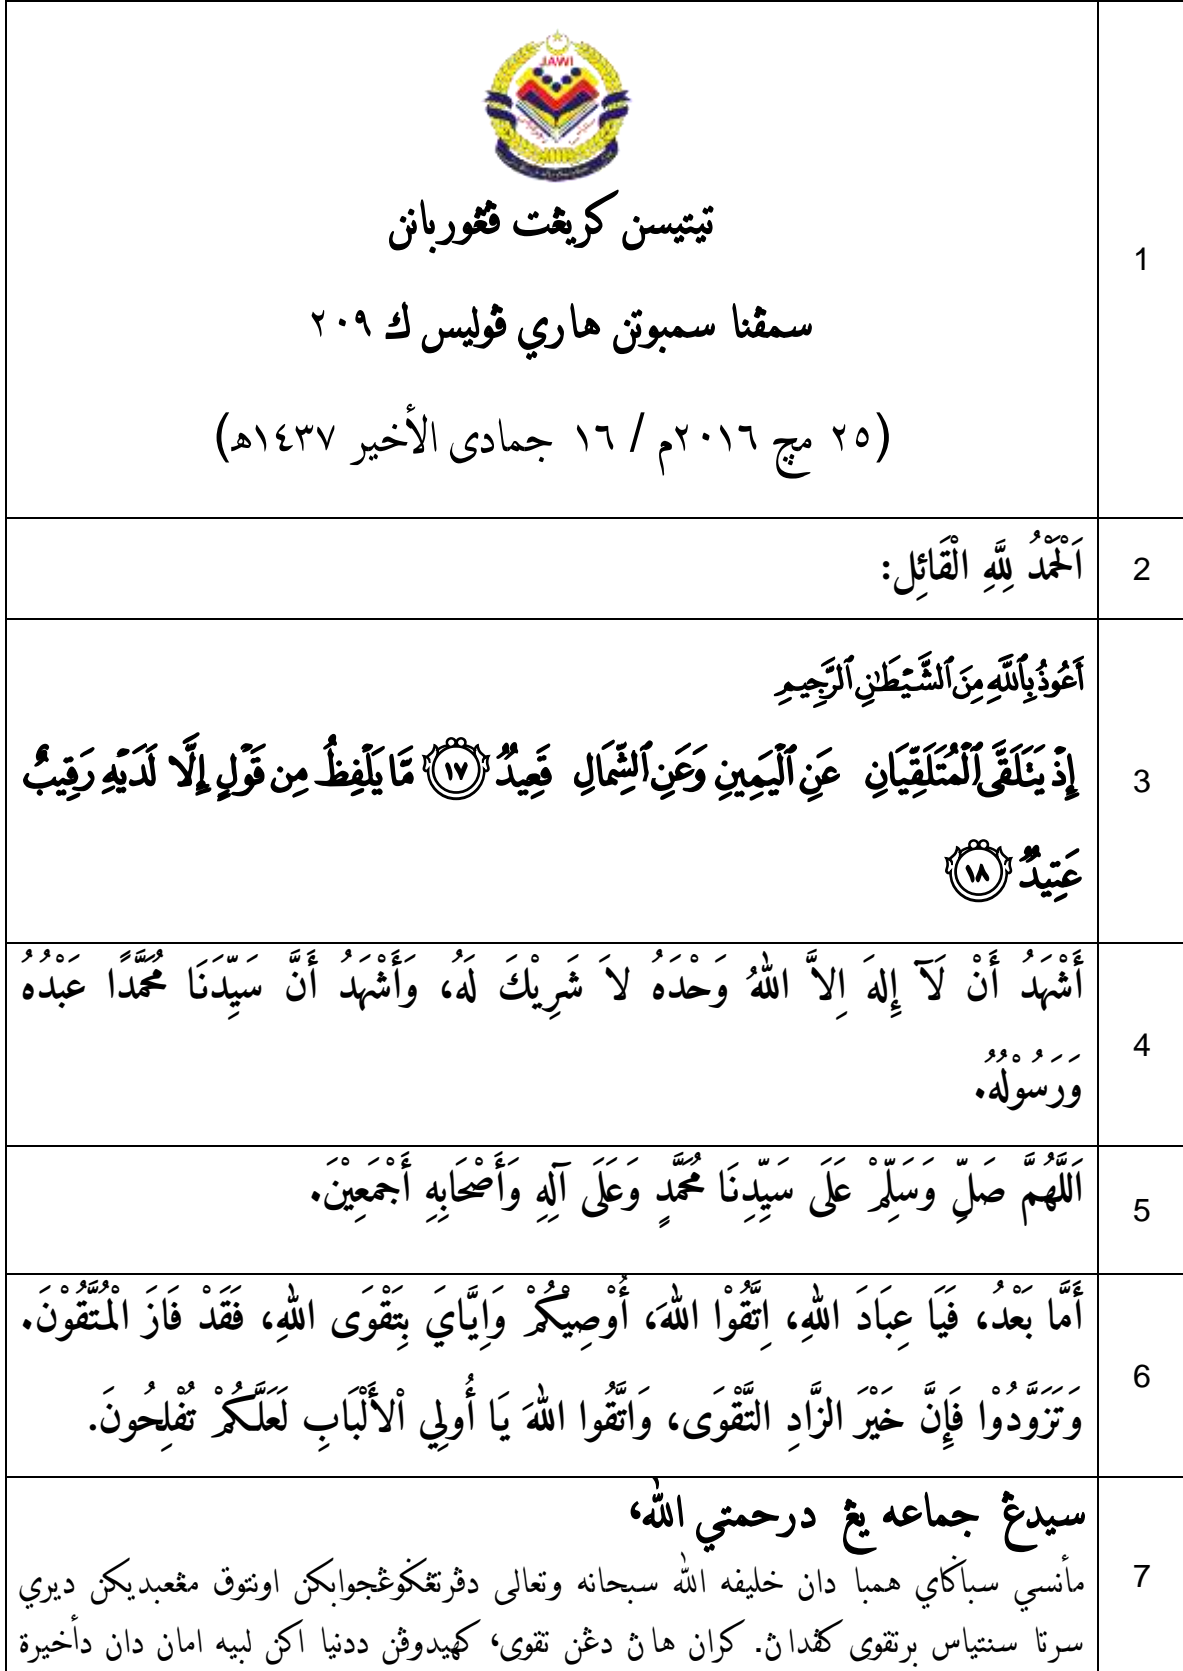 JAWI
تيتيسن كريڠت ڤڠوربانن
سمڤنا سمبوتن هاري ڤوليس ك ٢٠٩
(٢٥ مچ ٢٠١٦م / ١٦ جمادى الأخير ١٤٣٧ه)
1
اَلْحَمْدُ لِلَّهِ الْقَائِل:
2
أَعُوذُ بِٱللَّهِ مِنَ ٱلشَّيْطَٰنِ ٱلرَّجِيمِ
إِذْ يَتَلَقَّى ٱلْمُتَلَقِّيَانِ عَنِ ٱلْيَمِينِ وَعَنِ ٱلشِّمَالِ قَعِيدٌ ١٧ مَّا يَلْفِظُ مِن قَوْلٍ إِلَّا لَدَيْهِ رَقِيبٌ
عَتِيدٌ ١٨
3
أَشْهَدُ أَنْ لَآ إِلهَ اِلاَّ اللهُ وَحْدَهُ لاَ شَرِيْكَ لَهُ، وَأَشْهَدُ أَنَّ سَيِّدَنَا مُحَمَّدًا عَبْدُهُ
وَرَسُوْلُهُ.
4
اَللَّهُمَّ صَلِّ وَسَلِّمْ عَلَى سَيِّدِنَا مُحَمَّدٍ وَعَلَى آلِهِ وَأَصْحَابِهِ أَجْمَعِيْنَ.
5
أَمَّا بَعْدُ، فَيَا عِبَادَ اللهِ، اِتَّقُوْا اللهَ، أُوْصِيْكُمْ وَاِيَّايَ بِتَقْوَى اللهِ، فَقَدْ فَازَ الْمُتَّقُوْنَ.
وَتَزَوَّدُوْا فَإِنَّ خَيْرَ الزَّادِ التَّقْوَى، وَاتَّقُوا اللهَ يَا أُولِي اْلأَلْبَابِ لَعَلَّكُمْ تُفْلِحُونَ.
6
سيدڠ جماعه يڠ درحمتي الله،
مأنسي سباݢاي همبا دان خليفه الله سبحانه وتعالى دڤرتڠݢوڠجوابكن اونتوق مڠعبديكن ديري
سرتا سنتياس برتقوى كڤداڽ. كران هاڽ دڠن تقوى، كهيدوڤن ددنيا اكن لبيه امان دان دأخيرة
7